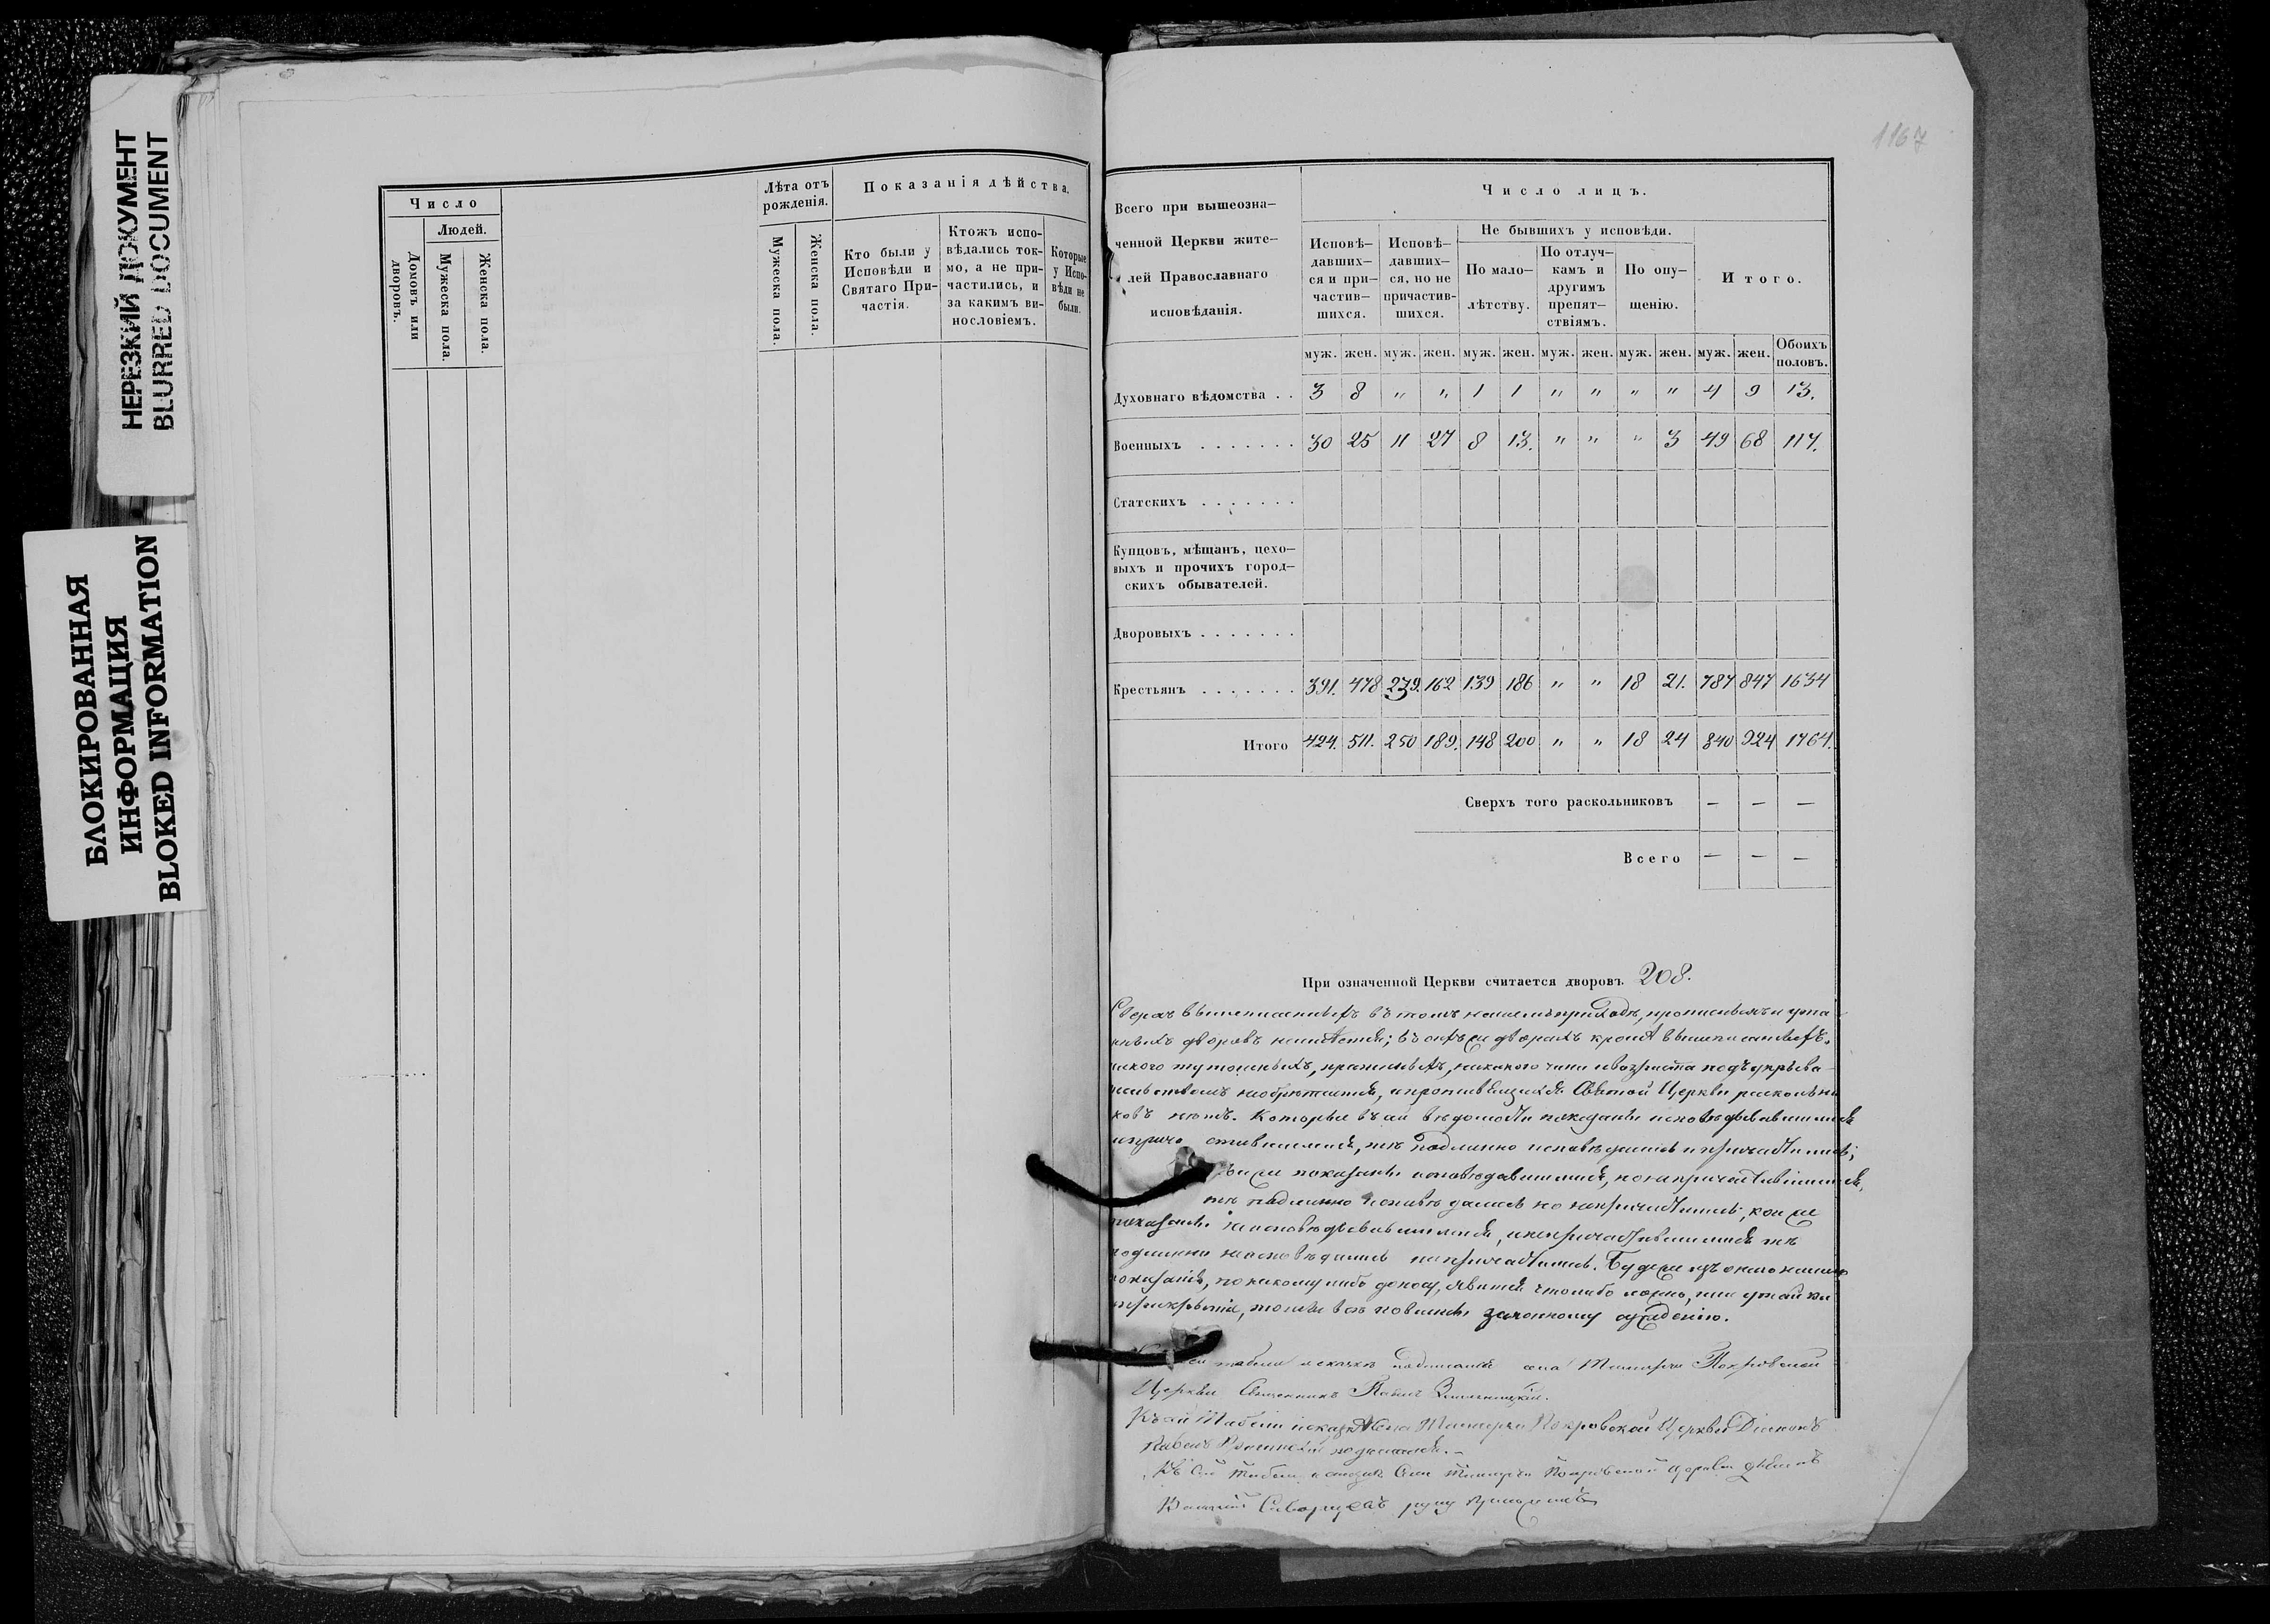 НЕРЕЗКИЙ ДОКУМЕНТ
BLURRED DOCUMENT
БЛОКИРОВАННАЯ
ИНФОРМАЦИЯ
BLOKED INFORMATION
Число
Людей.
Домовъ или дворовъ.
Мужеска пола.
Женска пола.
Лѣта отъ рожденія.
Мужеска пола.
Женска пола.
Показанія дѣйства.
Кто были у Исповѣди и Святаго При-частія.
Ктожъ испо-вѣдались ток-мо, а не при-частились, и за какимъ ви-нословіемъ.
Которые у Испо-вѣди не были.
1167
Всего при вышеозна-
ченной Церкви жите-
лей Православнаго
исповѣданія.
Число лицъ.
Исповѣ-давших-ся и при-частив-шихся.
Исповѣ-давших-ся, но не причастив-шихся.
Не бывшихъ у исповѣди.
По мало-лѣтству.
По отлуч-камъ и другимъ препят-ствіямъ.
По опу-щенію.
Итого.
муж. жен. муж. жен. муж. жен. муж. жен. муж. жен. муж. жен. Обоихъ половъ.
Духовнаго вѣдомства . . 3 8 " " 1 1 " " " " 4 9 13.
Военныхъ . . . . . . . 30 25 11 27 8 13. " " " 3 49 68 117.
Статскихъ . . . . . . .
Купцовъ, мѣщанъ, цехо-
выхъ и прочихъ город-
скихъ обывателей.
Дворовыхъ . . . . . . .
Крестьянъ . . . . . . . 391. 478 239. 162 139 186 " " 18 21. 787 847 1634
Итого 424. 511. 250 189. 148 200 " " 18 24 840 924 1764.
Сверхъ того раскольниковъ — — —
Всего — — —
При означенной Церкви считается дворовъ 208.
Сверхъ вышеписанныхъ въ томъ нашемъ приходѣ, прописныхъ и утае
ныхъ дворовъ неимѣется; въ оныхъ же дворахъ кромѣ вышеписанныхъ
никакого чина и возраста подъ укрыва
тельствомъ необрѣтается, и противящихся Святой Церкви раскольни
ковъ нѣтъ. Которые въ сей вѣдомости показаны исповѣдывавшимися
тѣ подлинно исповѣдались и причастились;
же показаны исповѣдавшимися, но не причастившимися,
тѣ подлинно исповѣдались но не причастились; кои же
показаны неисповѣдывавшимися, и непричастившимися тѣ
подлинно неисповѣдались и не причастились. Буде же изъ онаго нашего
показанія, по какому либо доносу, явится что либо ложно, или утайки
прикрытія, то мы всѣ повинны законному осужденію.
подписался села Покровской
Церкви Священникъ Павелъ
Къ сей Табели и сказкѣ села Покровской Церкви Діаконъ
Павелъ подписался.
Къ сей Табели и сказкѣ села Покровской Церкви
руку приложилъ